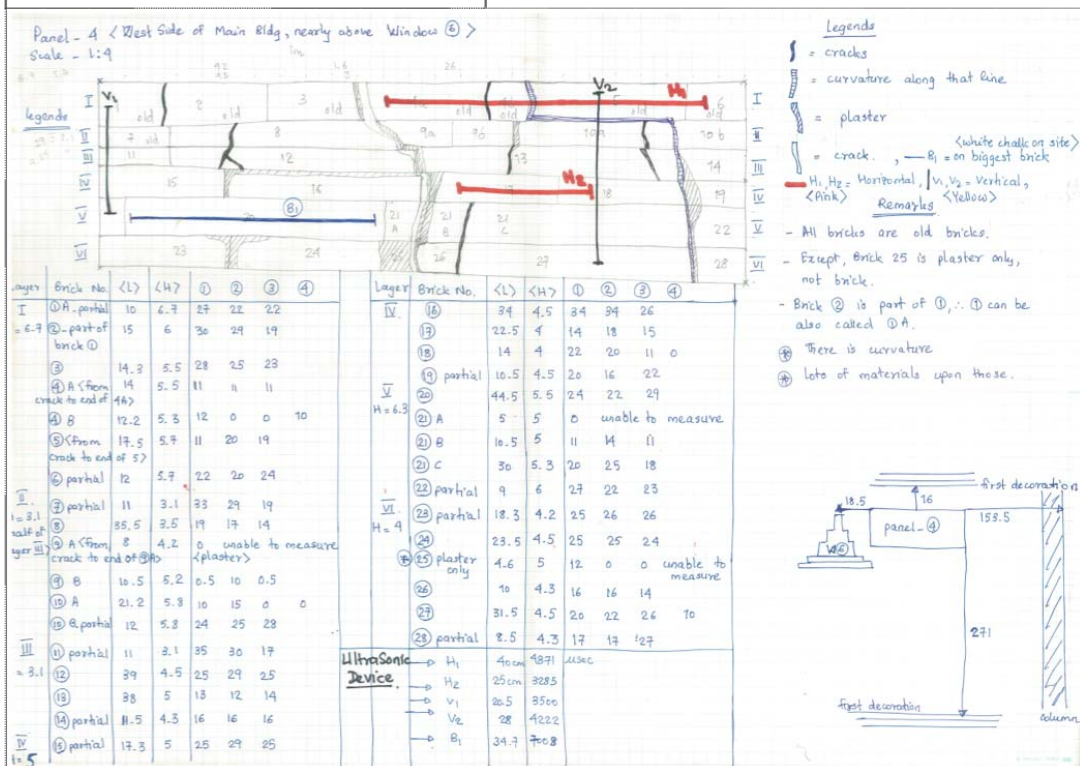 Panel - 4 <West Side of Main Bldg, nearly above Window ⑥>
Scale - 1:4
Legends
= cracks
= curvature along that line
= plaster
<white chalk on site>
= crack. , — B₁ = on biggest brick
H₁, H₂ = Horizontal, | V₁, V₂ = Vertical,
<Pink> <Yellow>
Remarks
- All bricks are old bricks.
- Except, Brick 25 is plaster only,
not brick.
- Brick ② is part of ①, ∴ ① can be
also called ①A.
⊛ There is curvature
⊛ Lots of materials upon those.
legends
V₁ V₂ H₁ H₂ B₁
I 2 old 3 old old old old 6 old I
II 7 old 8 9a 9b 10a 10b II
III 11 12 13 14 III
IV 15 16 17 18 19 IV
V 20 21 A 21 B 21 C 22 V
VI 23 24 25 26 27 28 VI
Layer Brick No. <L> <H> ① ② ③ ④
I ①A-partial 10 6.7 27 22 22
= 6.7 ②-part of 15 6 30 29 19
brick ①
③ 14.3 5.5 28 25 23
④ A <from 14 5.5 11 11 11
crack to end of 4A>
④ B 12.2 5.3 12 0 0 10
⑤ <from 17.5 5.7 11 20 19
crack to end of 5>
⑥ partial 12 5.7 22 20 24
II ⑦ partial 11 3.1 33 29 19
= 3.1 ⑧ 35.5 3.5 19 17 14
half of
layer III> ⑨ A <from 8 4.2 0 unable to measure
crack to end of 9A> <plaster>
⑨ B 10.5 5.2 0.5 10 0.5
⑩ A 21.2 5.8 10 15 0 0
⑩ B partial 12 5.8 24 25 28
III ⑪ partial 11 3.1 35 30 17
= 3.1 ⑫ 39 4.5 25 29 25
⑬ 38 5 13 12 14
⑭ partial 11.5 4.3 16 16 16
IV ⑮ partial 17.3 5 25 29 25
= 5
Layer Brick No. <L> <H> ① ② ③ ④
IV ⑯ 34 4.5 34 34 26
⑰ 22.5 4 14 18 15
⑱ 14 4 22 20 11 0
⑲ partial 10.5 4.5 20 16 22
V ⑳ 44.5 5.5 24 22 29
H = 6.3
㉑ A 5 5 0 unable to measure
㉑ B 10.5 5 11 14 11
㉑ C 30 5.3 20 25 18
㉒ partial 9 6 27 22 23
VI ㉓ partial 18.3 4.2 25 26 26
H = 4 ㉔ 23.5 4.5 25 25 24
⊛ ㉕ plaster 4.6 5 12 0 0 unable to
only measure
㉖ 10 4.3 16 16 14
㉗ 31.5 4.5 20 22 26 10
㉘ partial 8.5 4.3 17 17 27
UltraSonic
Device
H₁ 40cm 4371 μsec
H₂ 25cm 3285
V₁ 20.5 3500
V₂ 28 4222
B₁ 34.7 7008
first decoration
18.5
16
153.5
panel-④
W⑥
271
first decoration
column